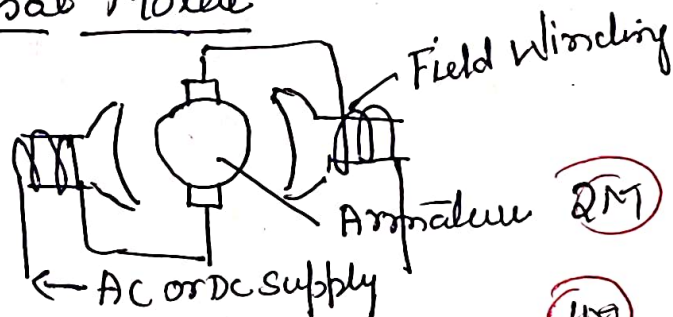 Field Winding
Armature
2M
AC or DC Supply